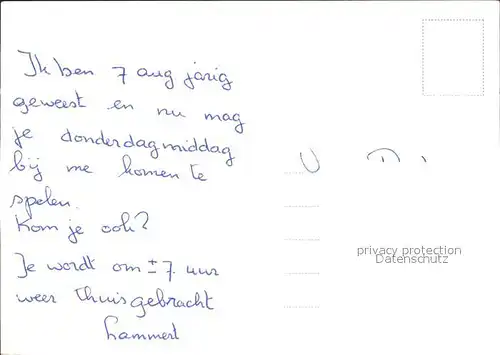 Ik ben 7 aug jarig
geweest en nu mag
je donderdagmiddag
bij me komen te
spelen.
Kom je ook?
Je wordt om ± 7 uur
weer thuisgebracht
Lammert
privacy protection
Datenschutz